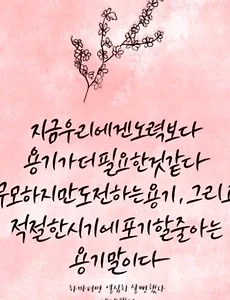 지금우리에겐노력보다
용기가더필요한것같다
무모하지만도전하는용기, 그리고
적절한시기에포기할줄아는
용기말이다
하마터면 열심히 살뻔했다